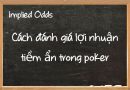 Implied Odds
Cách đánh giá lợi nhuận
tiềm ẩn trong poker